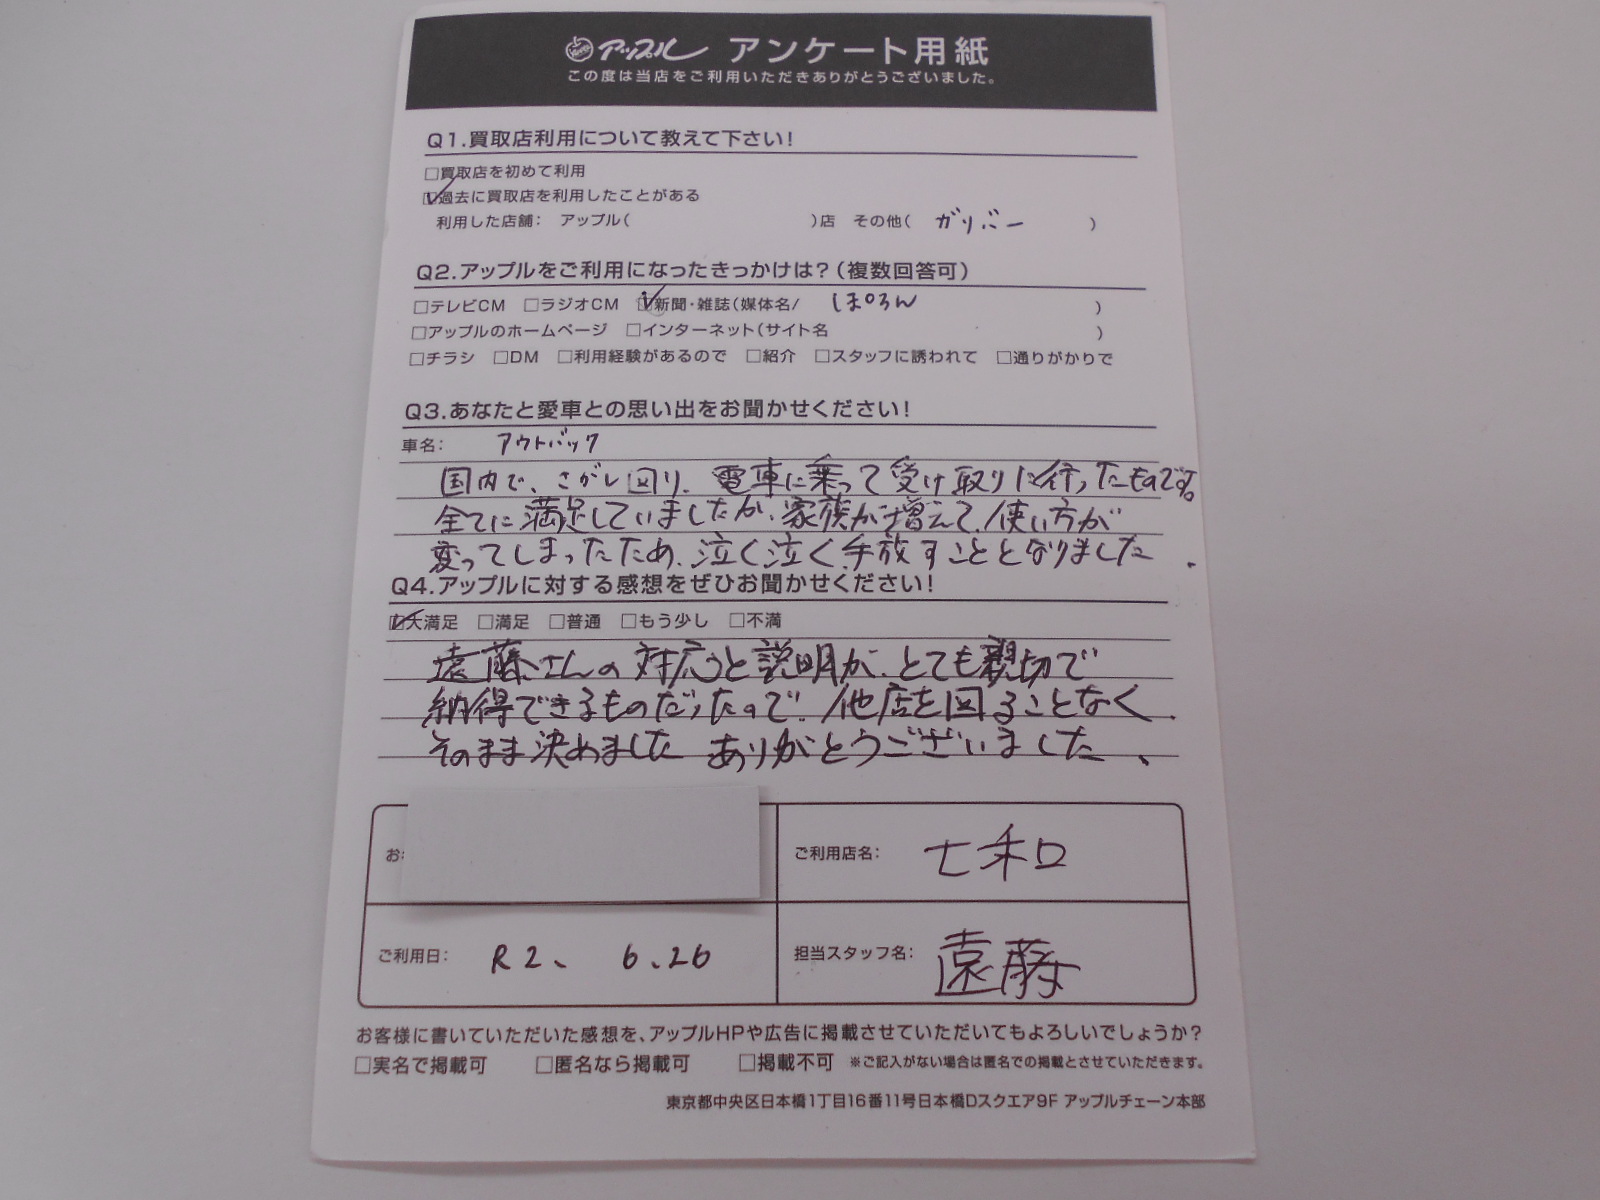 アップル アンケート用紙
この度は当店をご利用いただきありがとうございました。
Q1.買取店利用について教えて下さい!
□買取店を初めて利用
☑過去に買取店を利用したことがある
利用した店舗: アップル( )店 その他( ガリバー )
Q2.アップルをご利用になったきっかけは?(複数回答可)
□テレビCM □ラジオCM ☑新聞・雑誌(媒体名/ ぽろん )
□アップルのホームページ □インターネット(サイト名 )
□チラシ □DM □利用経験があるので □紹介 □スタッフに誘われて □通りがかりで
Q3.あなたと愛車との思い出をお聞かせください!
車名: アウトバック
国内で、さがし回り、電車に乗って受け取りに行ったものです。
全てに満足していましたが、家族が増えて、使い方が
変ってしまったため、泣く泣く手放すこととなりました.
Q4.アップルに対する感想をぜひお聞かせください!
☑大満足 □満足 □普通 □もう少し □不満
遠藤さんの対応と説明が、とても親切で
納得できるものだったので、他店を回ることなく、
そのまま決めました ありがとうございました、
お
ご利用店名: 七和
ご利用日: R2、 6.26
担当スタッフ名: 遠藤
お客様に書いていただいた感想を、アップルHPや広告に掲載させていただいてもよろしいでしょうか?
□実名で掲載可 □匿名なら掲載可 □掲載不可 ※ご記入がない場合は匿名での掲載とさせていただきます。
東京都中央区日本橋1丁目16番11号日本橋Dスクエア9F アップルチェーン本部